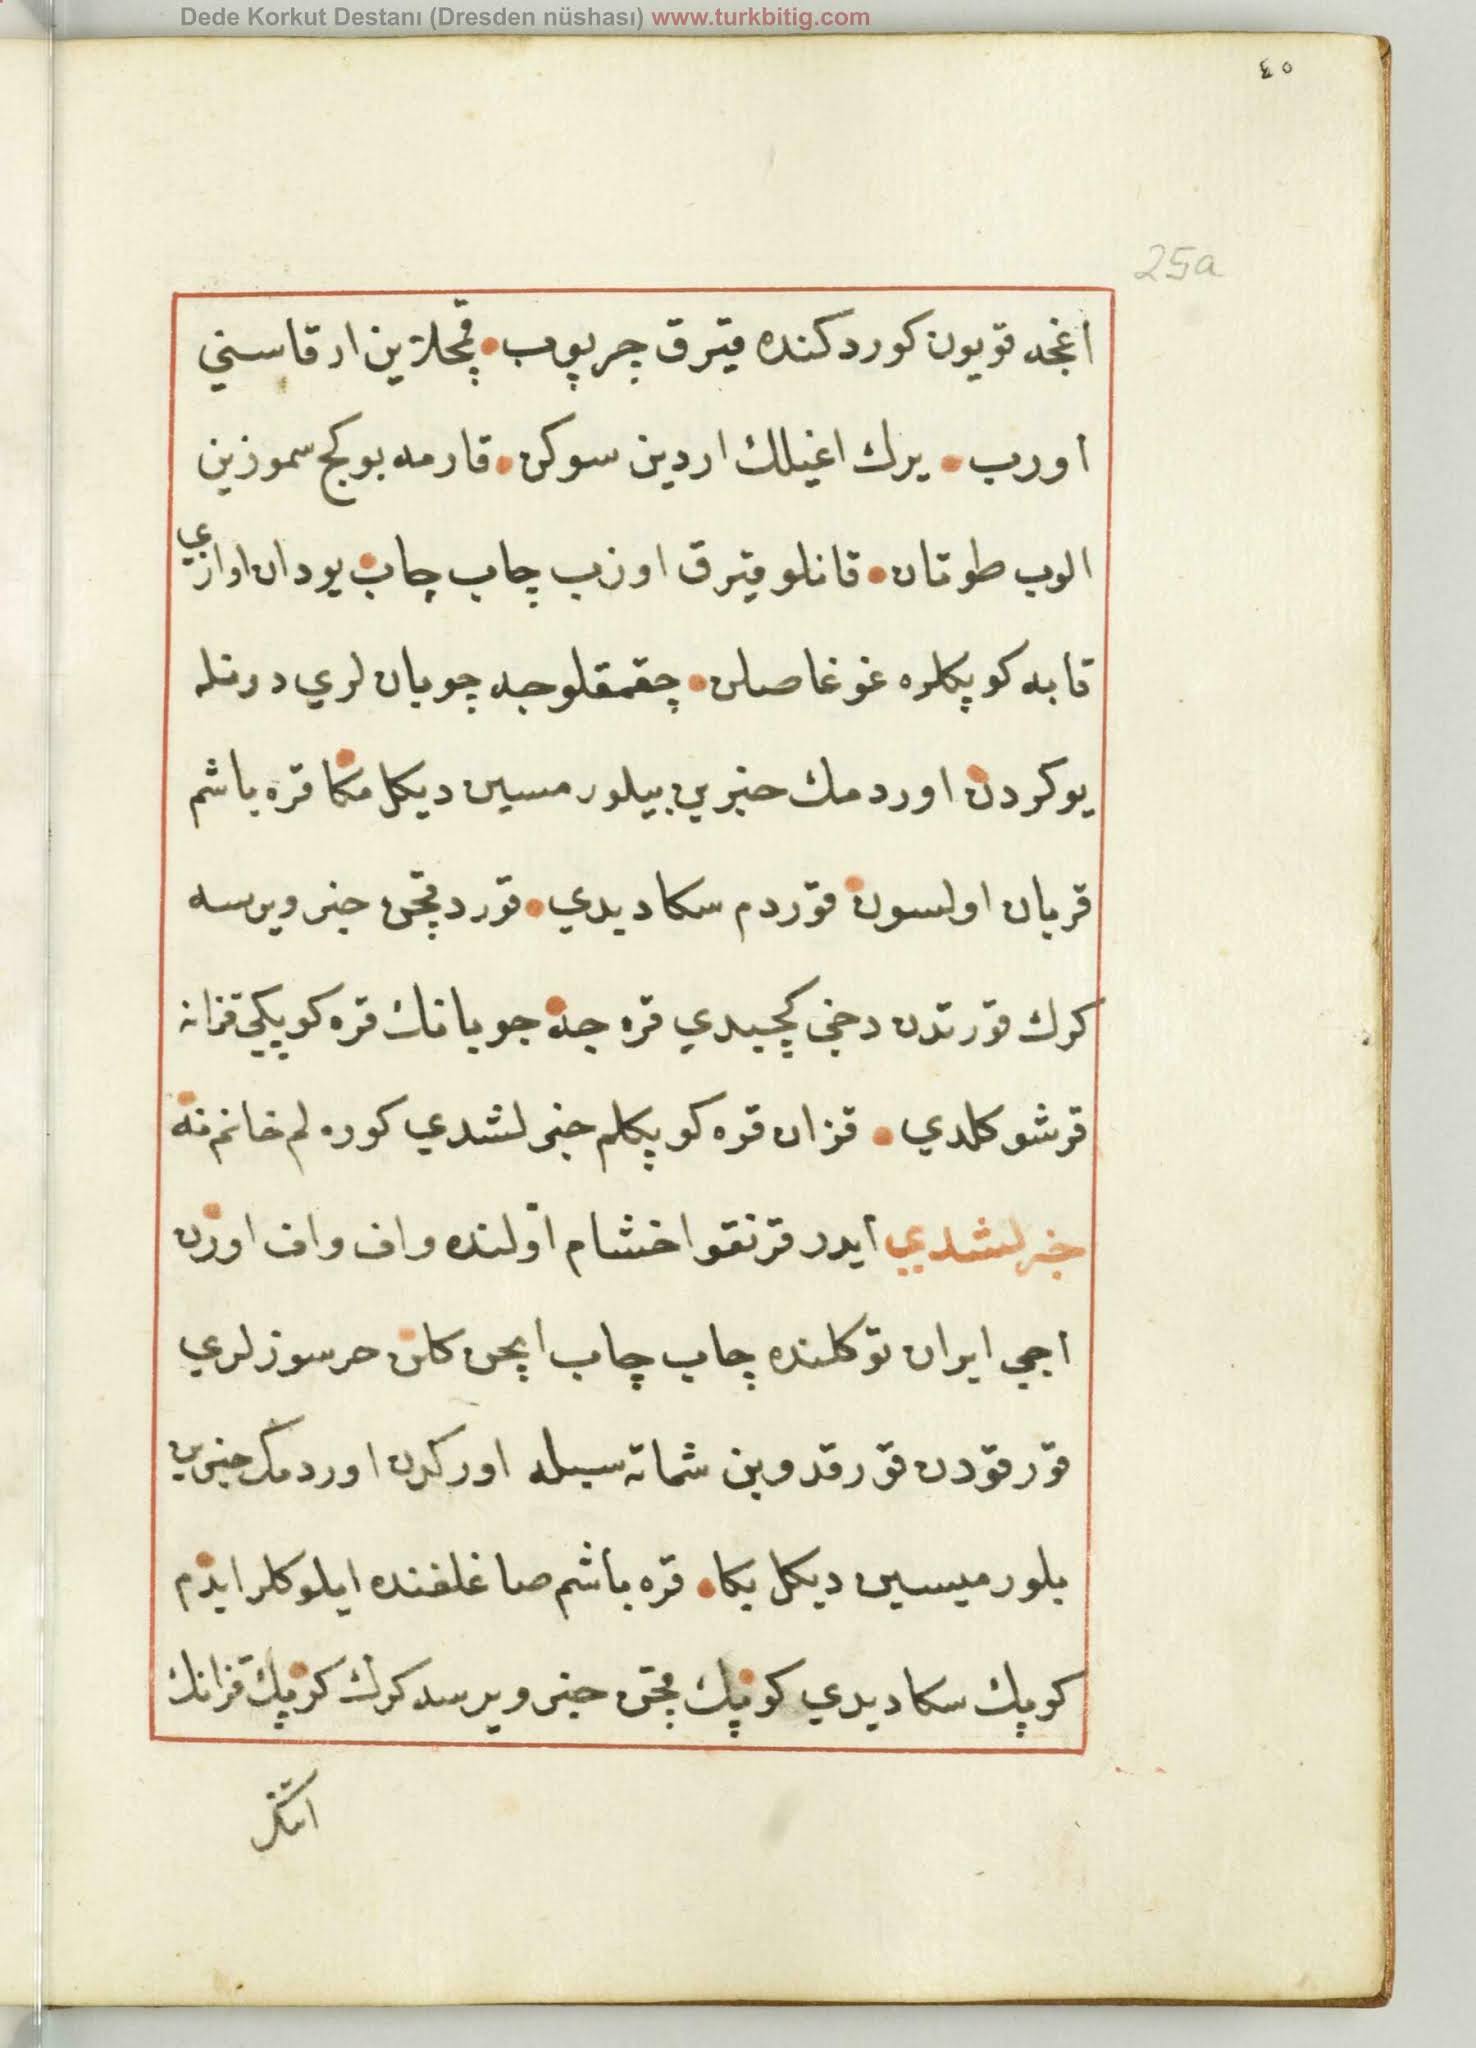 Dede Korkut Destanı (Dresden nüshası) www.turkbitig.com
٤٥
25a
اغجه قویون كوردكنده قیرق چرپوب قمچلاین ارقاسنی
اورب یرك اغیلك اردین سوكن قارمه بوكج سموزین
الوب طوتان قانلو قیرق اوزب چاپ چاپ یودان اوازی
قابه كوپكلره غوغا صلن چقمقلوجه چوبان لری دونله
یوكردن اوردمك خبرین بیلورمسین دیكل مكا قره باشم
قربان اولسون قوردم سكا دیدی قورد قچن خبر ویرسه
كرك قورتدن دخی كچیدی قره جه چوبانك قره كوپكی قزانه
قرشو كلدی قزان قره كوپكلم خبرلشدی كوره لم خانم نه
خبرلشدی ایدر قرنقو اخشام اولنده واف واف اورن
اجی ایران توكلنده چاپ چاپ ایچن كلن حرسوزلری
قورقودن قورقدوبن شماته سیله اوركدن اوردمك خبرین
بلورمیسین دیكل بكا قره باشم صاغلغنده ایلوكلر ایدم
كوپك سكا دیدی كوپك قچن خبر ویرسه كرك كوپك قزانك